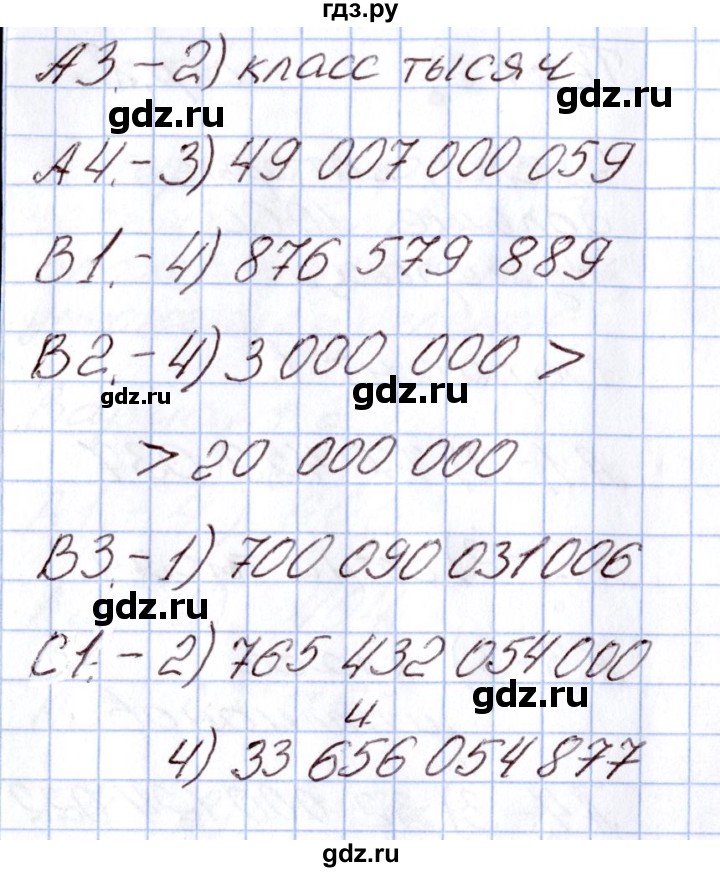 гдз.ру
А3.-2) класс тысяч
gdz.ru
gdz.ru
А4.-3) 49 007 000 059
В1.-4) 876 579 889
В2.-4) 3 000 000 >
gdz.ru
gdz.ru
> 20 000 000
В3.-1) 700 090 031 006
gdz.ru
С1.-2) 765 432 054 000
gdz.ru
и
4) 33 656 054 877
gdz.ru